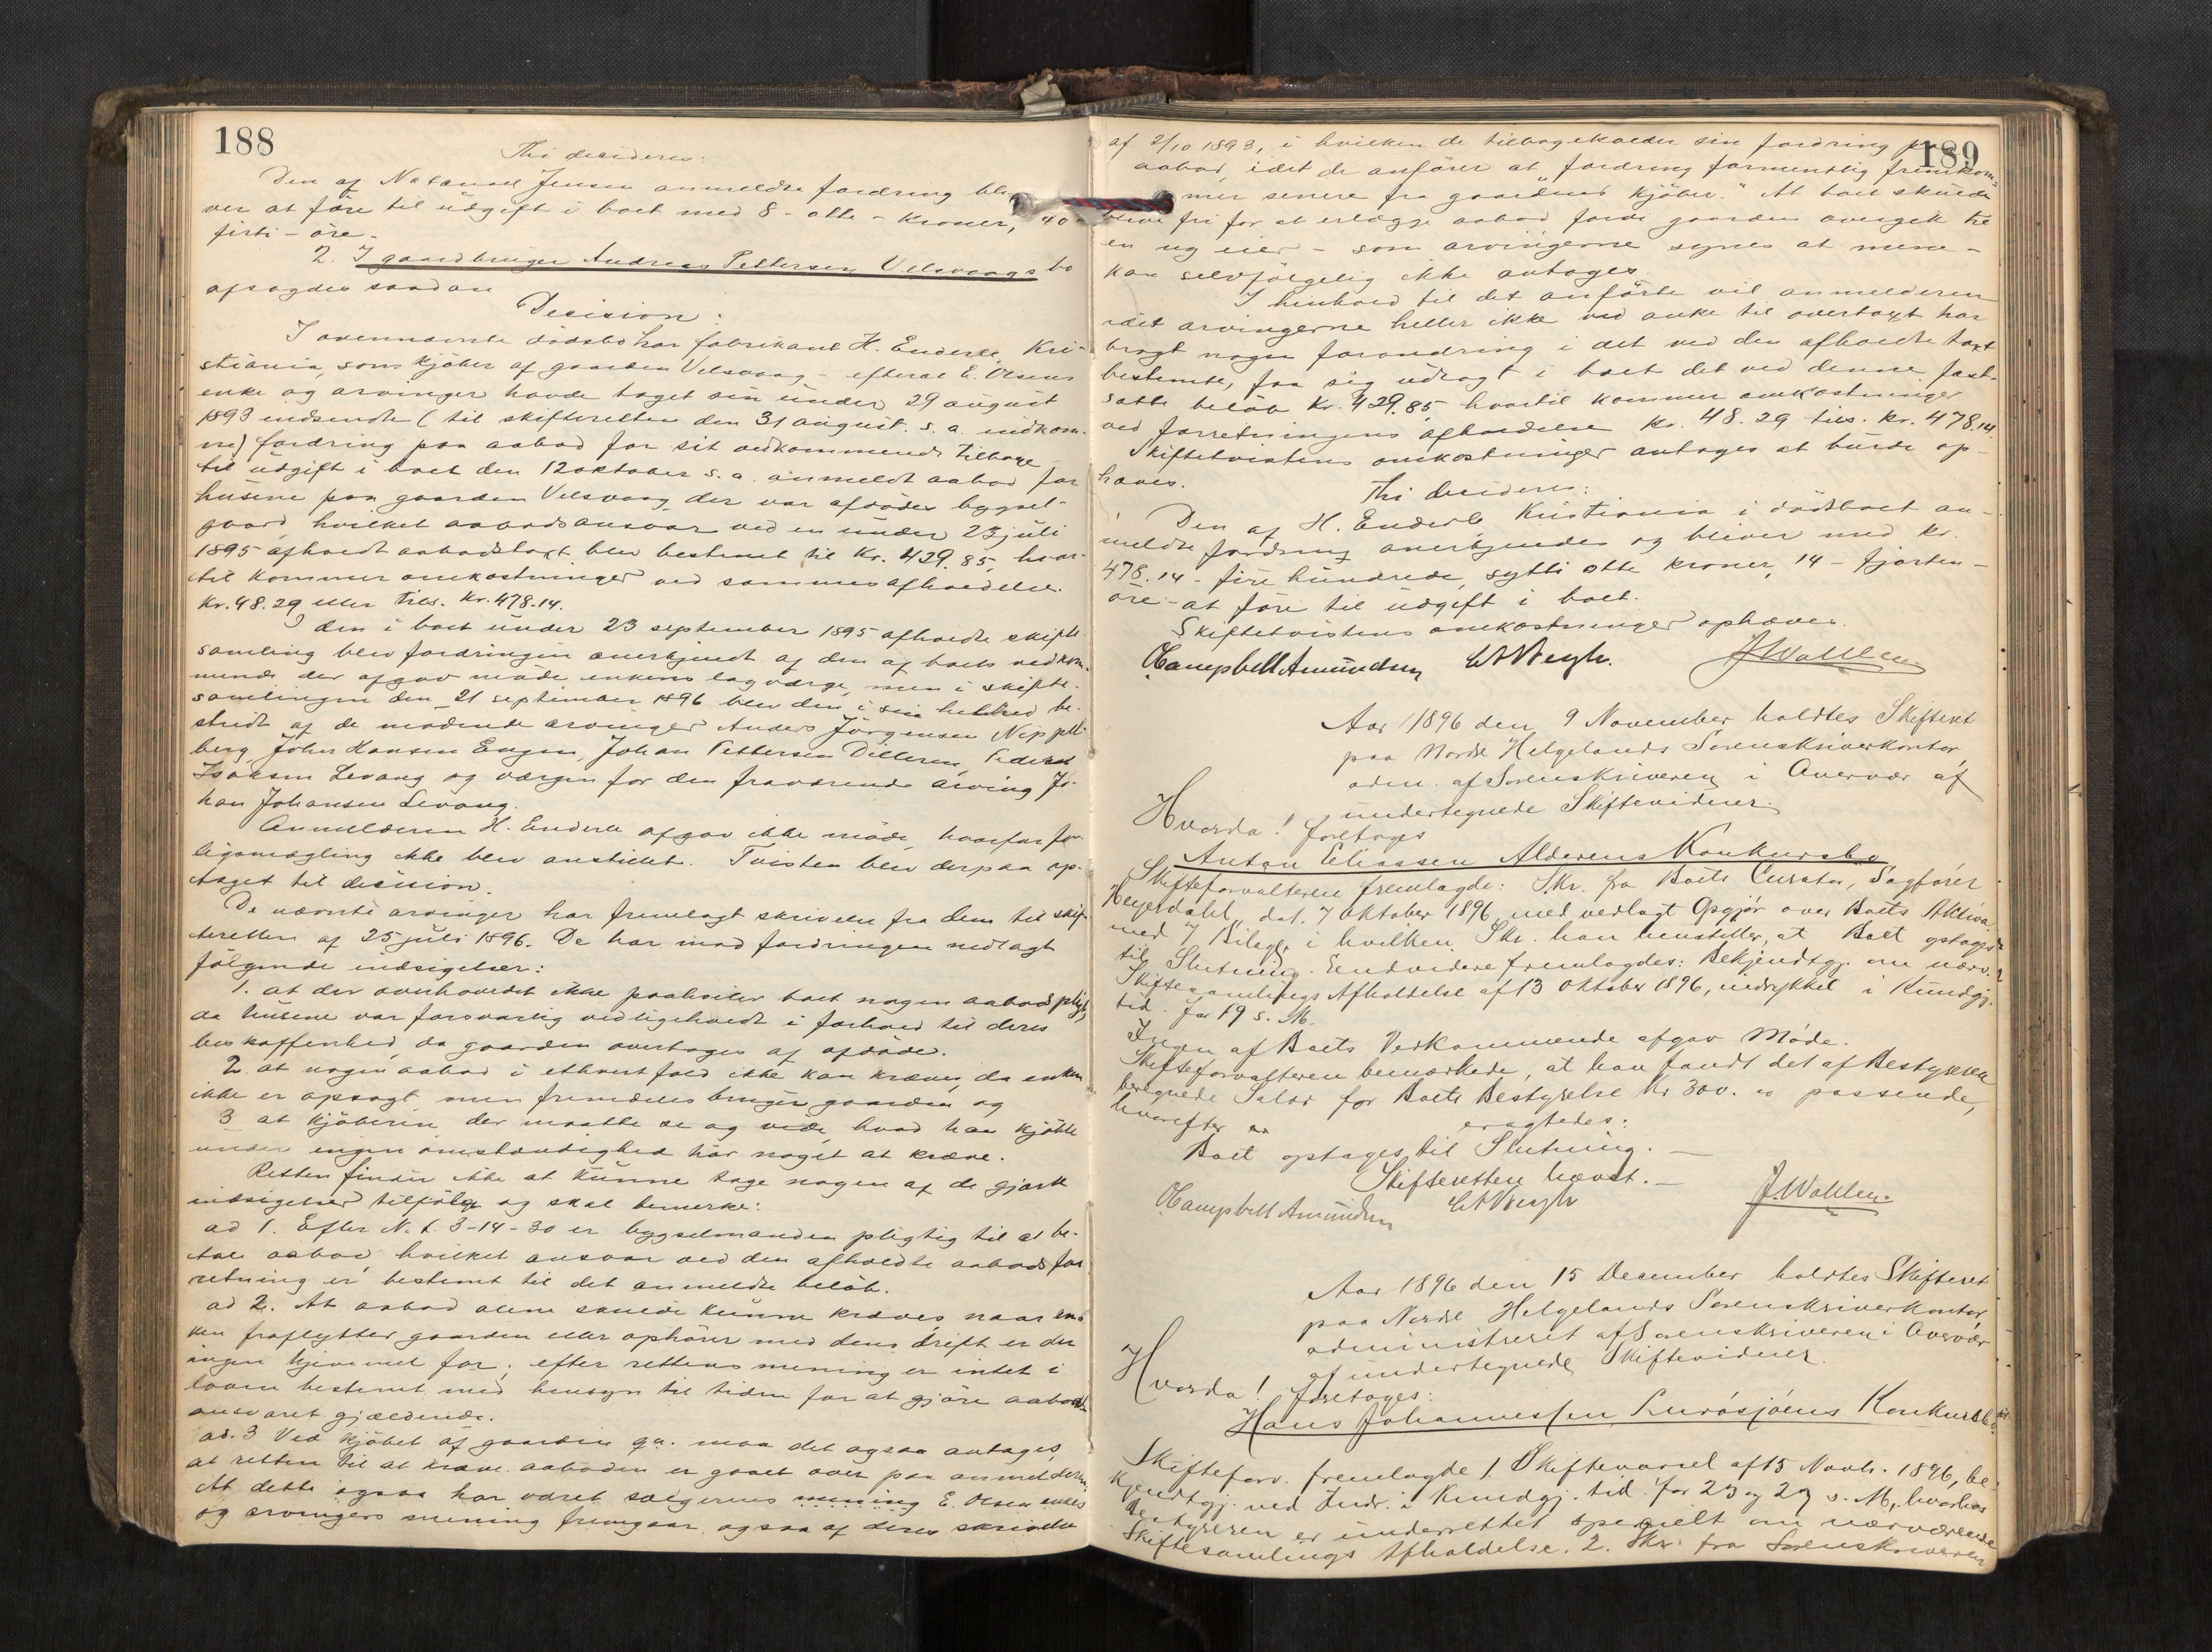 188
Thi decideres:
Den af Natanael Jensen anmeldte fordring bli-
ver at føre til udgift i boet med 8 - otte - kroner, 40
firti - øre.
2. I gaardbruger Andreas Pettersen Velsvaags bo
afsagdes saadan
Decision:
I ovennævnte dødsbo har fabrikant H. Enderle, Kri-
stiania, som kjøber af gaarden Velsvaag - efterat E. Olsens
enke og arvinger havde taget sin under 29 august
1893 indsendte (til skifteretten den 31 august s. a. indkom-
ne) fordring paa aabod for sit vedkommende tilbage -
til udgift i boet den 12 oktober s. a. anmeldt aabod for
husene paa gaarden Velsvaag, der var afdødes bygsel-
gaard, hvilket aabodsansvar ved en under 23 juli
1895 afholdt aabodstaxt blev bestemt til Kr. 429.85, hvor-
til kommer omkostninger ved sammes afholdelse
Kr. 48.29 eller tils. Kr. 478.14.
I den i boet under 23 september 1895 afholdte skifte-
samling blev fordringen anerkjendt af den af boets vedkom-
mende, der afgav møde enkens lagværge, men i skifte-
samlingen den 21 september 1896 blev den i sin helhed be-
stridt af de mødende arvinger Anders Jørgensen
berg, Johan Hansen Engen, Johan Pettersen Dilleren, Peder
Isaksen Levang og værgen for den fraværende arving Jo-
han Johansen Levang.
Anmelderen H. Enderle afgav ikke møde, hvorfor for-
ligsmægling ikke blev anstillet. Tvisten blev derpaa op-
taget til decision.
De nævnte arvinger har fremlagt skrivelse fra dem til skif-
teretten af 25 juli 1896. De har mod fordringen nedlagt
følgende indsigelser:
1. at der overhovedet ikke paahviler boet nogen aabodspligt,
da husene var forsvarlig vedligeholdt i forhold til deres
beskaffenhed, da gaarden overtoges af afdøde.
2. at nogen aabod i ethvert fald ikke kan kræves, da enken
ikke er opsagt, men fremdeles bruger gaarden og
3 at kjøberen der maatte se og vide, hvad han kjøbte
under ingen omstændighed har noget at kræve.
Retten finder ikke at kunne tage nogen af de gjorte
indsigelser tilfølge og skal bemerke:
ad 1. Efter N. L. 3-14-30 er bygselmanden pligtig til at be-
tale aabod, hvilket ansvar ved den afholdte aabodsfor
retning er bestemt til det anmeldte beløb.
ad 2. At aabod alene skulde kunne kræves, naar en-
ken fraflytter gaarden eller ophører med dens drift er der
ingen hjemmel for; efter rettens mening er intet i
loven bestemt med hensyn til tiden for at gjøre aabods-
ansvaret gjældende.
ad. 3 Ved kjøbet af gaarden qu. maa det ogsaa antages,
at retten til at kræve aaboden er gaaet over paa anmelderen.
At dette ogsaa har været sælgerens mening E. Olsens enkes
og arvingers mening fremgaar ogsaa af deres skrivelse
189
af 2/10 1893, i hvilken de tilbagekalder sin fordring paa
aabod, idet de anfører at "fordring formentlig fremkom-
mer senere fra gaardens kjøber." At boet skulde
blive fri for at erlægge aabod fordi gaarden overgik til
en ny eier - som arvingerne synes at mene -
kan selvfølgelig ikke antages.
I henhold til det anførte vil anmelderen
idet arvingerne heller ikke ved anke til overtaxt har
bragt nogen forandring i det ved den afholdte taxt
bestemte, faa sig udlagt i boet det ved denne fast-
satte beløb Kr. 429,85, hvortil kommer omkostninger
ved forretningens afholdelse Kr. 48.29 tils. Kr. 478,14.
Skiftetvistens omkostninger antages at burde op-
hæves.
Thi decideres:
Den af H. Enderle, Kristiania i dødsboet an-
meldte fordring anerkjendes og bliver med kr.
478.14 - fire hundrede, sytti otte kroner, 14 - fjorten -
øre - at føre til udgift i boet.
Skiftetvistens omkostninger ophæves.
OCampbellAmundsen J.Wahlen
Aar 1896 den 9 November holdtes Skifteret
paa Nordre Helgelands Sorenskriverkontor,
adm. af Sorenskriveren i Overvær af
undertegnede Skiftevidner.
Hvorda! foretoges
Anton Eliassen Alderens Konkursbo
Skifteforvalteren fremlagde: Skr. fra Boets Curator, Sagfører
Heyerdahl, dat. 7 Oktober 1896 med vedlagt Opgjør over Boets Aktiva
med 7 Bilage, i hvilken Skr. han henstiller, at Boet optages
til Slutning. Eendvidere fremlagdes: Bekjendtgj. om nærv.
Skiftesamlings Afholdelse af 13 Oktober 1896, indrykket i Kundgj.
tid. for 19 s. M.
Ingen af Boets Vedkommende afgav Møde.
Skifteforvalteren bemærkede, at han fandt det af Bestyreren
beregnede Salær for Boets Bestyrelse Kr 300.00 passende,
hvorefter eragtedes:
Boet optages til Slutning. -
Skifteretten hævet. -
OCampbell Amundsen J.Wahlen
Aar 1896 den 15 December holdtes Skifteret
paa Nordre Helgelands Sorenskriverkontor,
administreret af Sorenskriveren i Overvær
af undertegnede Skiftevidner.
Hvorda! foretoges:
Hans Johannessen Lurøsjøens Konkursbo.
Skifteforv. fremlagde 1. Skiftevarsel af 15 Novb. 1896, be-
kjendtgj. ved Indr. i Kundgj. tid. for 23 og 27 s. M., hvorhos
Bestyreren er underrettet specielt om nærværende
Skiftesamlings Afholdelse. 2. Skr. fra Sorenskriveren